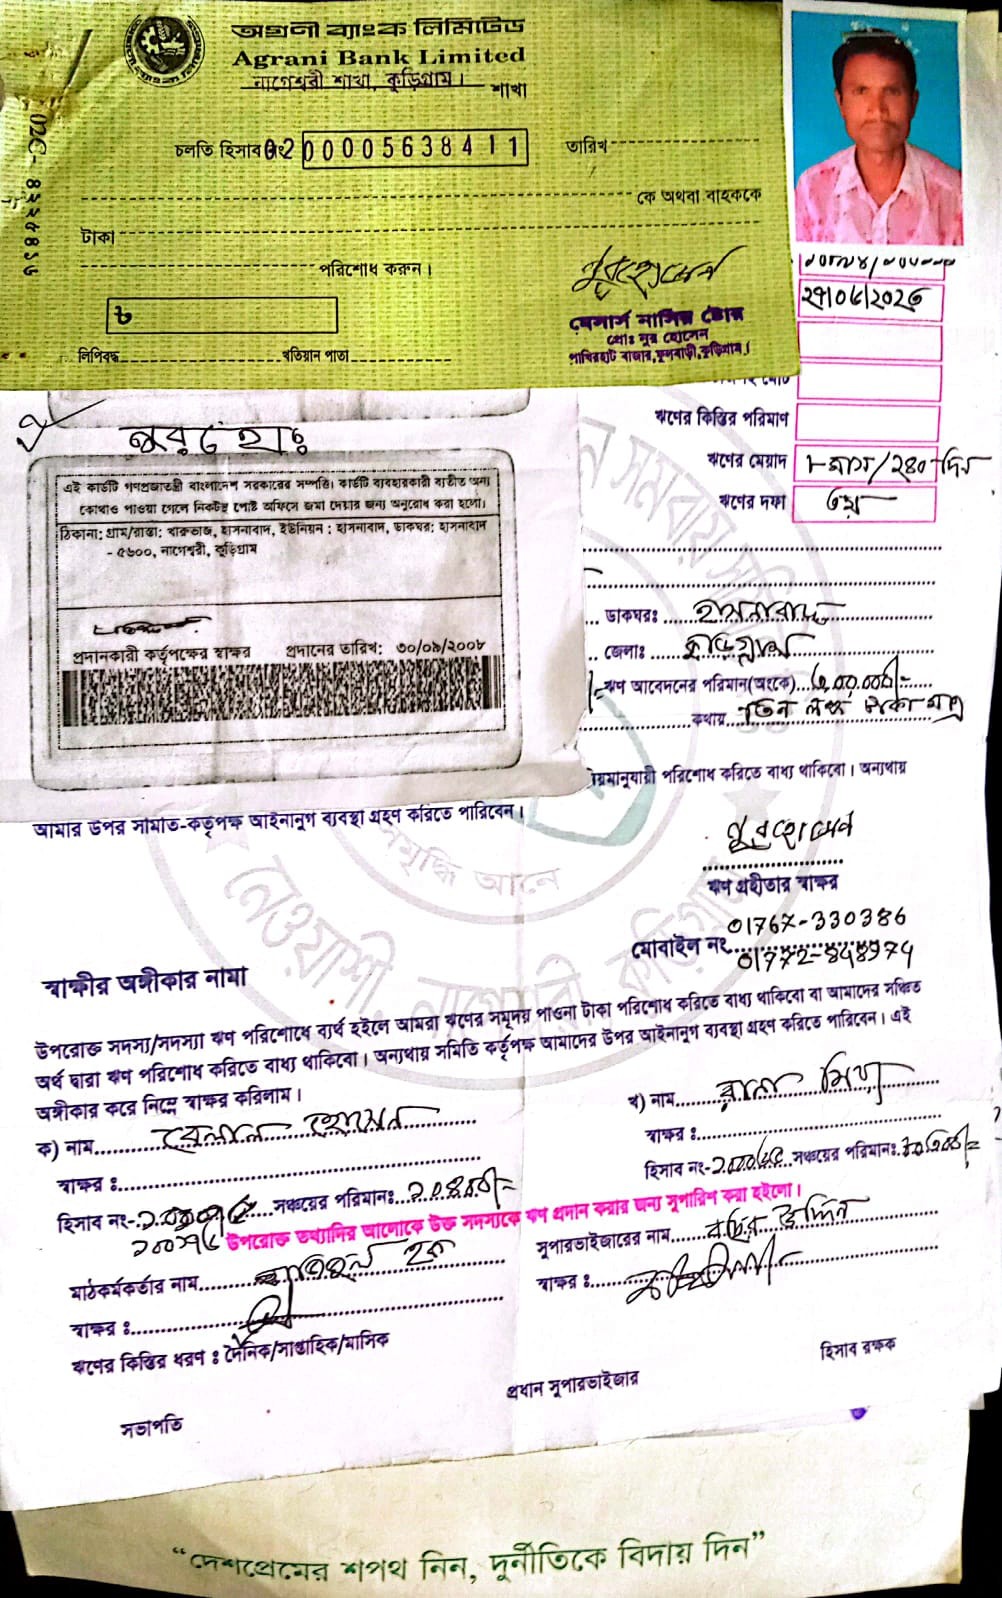 অগ্রনী ব্যাংক লিমিটেড
Agrani Bank Limited
নাগেশ্বরী শাখা, কুড়িগ্রাম। শাখা
চলতি হিসাব নং 02 00005638411 তারিখ
কে অথবা বাহককে
টাকা
পরিশোধ করুন।
৳
লিপিবদ্ধ খতিয়ান পাতা
নুরহোসেন
মেসার্স নাসির ষ্টোর
প্রোঃ নুর হোসেন
পাখিরহাট বাজার, ফুলবাড়ী, কুড়িগ্রাম।
ঋণের কিস্তির পরিমাণ
ঋণের মেয়াদ ৮ মাস/২৪০ দিন
ঋণের দফা ৩য়
এই কার্ডটি গণপ্রজাতন্ত্রী বাংলাদেশ সরকারের সম্পত্তি। কার্ডটি ব্যবহারকারী ব্যতীত অন্য
কোথাও পাওয়া গেলে নিকটস্থ পোষ্ট অফিসে জমা দেয়ার জন্য অনুরোধ করা হলো।
ঠিকানা: গ্রাম/রাস্তা: খারুভাজ, হাসনাবাদ, ইউনিয়ন : হাসনাবাদ, ডাকঘর: হাসনাবাদ
- ৫৬০০, নাগেশ্বরী, কুড়িগ্রাম
প্রদানকারী কর্তৃপক্ষের স্বাক্ষর প্রদানের তারিখ: ৩০/০৯/২০০৮
ডাকঘরঃ হাসনাবাদ
জেলাঃ কুড়িগ্রাম
ঋণ আবেদনের পরিমান(অংকে) ৩,০০,০০০/=
কথায় তিন লক্ষ টাকা মাত্র
নিয়মানুযায়ী পরিশোধ করিতে বাধ্য থাকিবো। অন্যথায়
আমার উপর সমিতি-কর্তৃপক্ষ আইনানুগ ব্যবস্থা গ্রহণ করিতে পারিবেন।
সমৃদ্ধি আনে
নেওয়াশী, নাগেশ্বরী, কুড়িগ্রাম
নুরহোসেন
ঋণ গ্রহীতার স্বাক্ষর
মোবাইল নং 01767-330386
01772-848974
স্বাক্ষীর অঙ্গীকার নামা
উপরোক্ত সদস্য/সদস্যা ঋণ পরিশোধে ব্যর্থ হইলে আমরা ঋণের সমূদয় পাওনা টাকা পরিশোধ করিতে বাধ্য থাকিবো বা আমাদের সঞ্চিত
অর্থ দ্বারা ঋণ পরিশোধ করিতে বাধ্য থাকিবো। অন্যথায় সমিতি কর্তৃপক্ষ আমাদের উপর আইনানুগ ব্যবস্থা গ্রহণ করিতে পারিবেন। এই
অঙ্গীকার করে নিম্নে স্বাক্ষর করিলাম।
ক) নাম বেলাল হোসেন
খ) নাম রানা মিয়া
স্বাক্ষর ঃ
স্বাক্ষর ঃ
হিসাব নং- সঞ্চয়ের পরিমানঃ ২০৪০০/=
হিসাব নং- সঞ্চয়ের পরিমানঃ
উপরোক্ত তথ্যাদির আলোকে উক্ত সদস্যকে ঋণ প্রদান করার জন্য সুপারিশ করা হইলো।
মাঠকর্মকর্তার নাম
সুপারভাইজারের নাম
স্বাক্ষর ঃ
স্বাক্ষর ঃ
ঋণের কিস্তির ধরণ ঃ দৈনিক/সাপ্তাহিক/মাসিক
সভাপতি
প্রধান সুপারভাইজার
হিসাব রক্ষক
“দেশপ্রেমের শপথ নিন, দুর্নীতিকে বিদায় দিন”